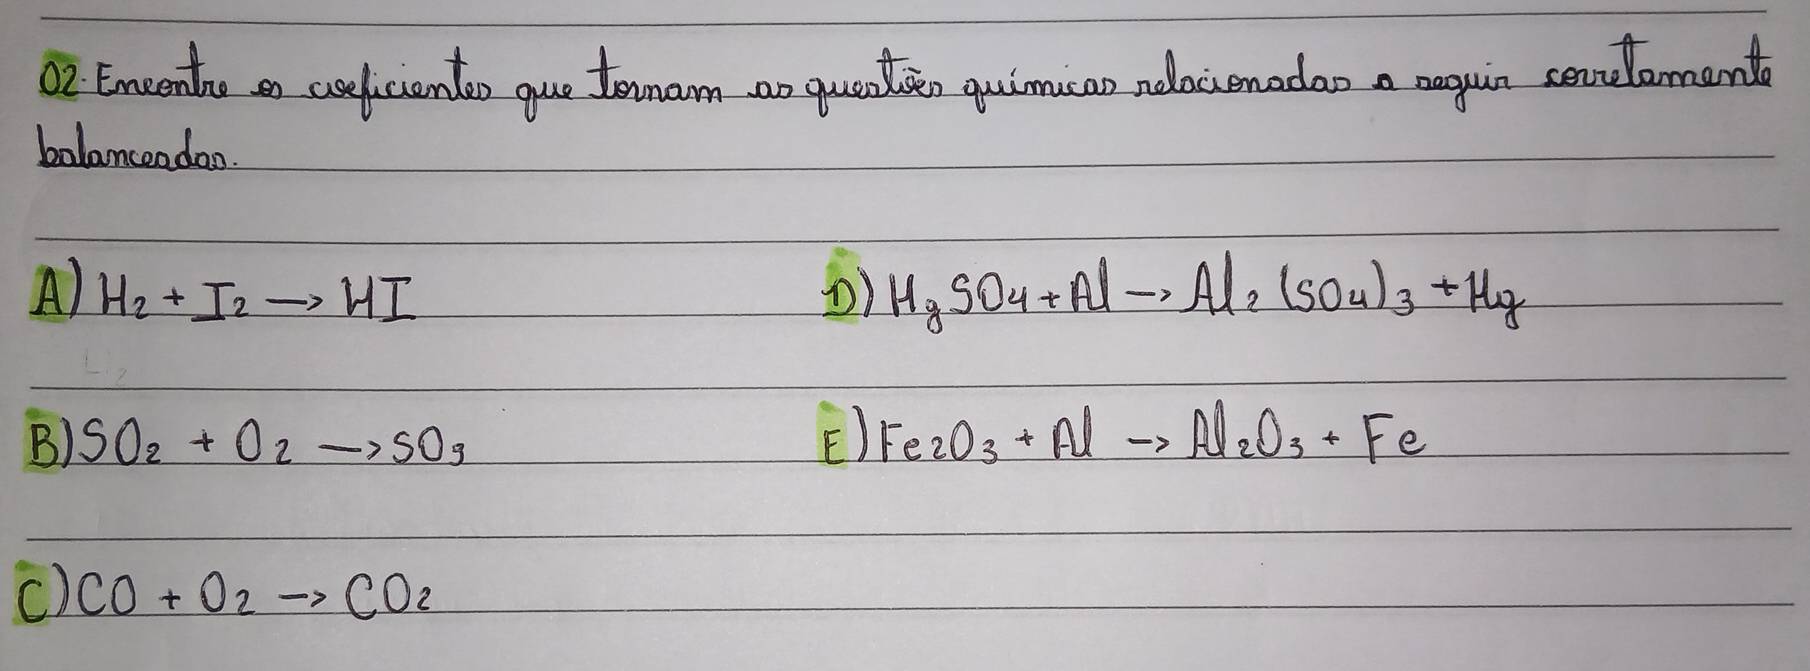 02. Encontre os coeficientes que tornam as questões químicas relacionadas a seguir corretamente
balanceadas.
A) H₂ + I₂ → HI
D) HgSO₄ + Al → Al₂(SO₄)₃ + Hg
B) SO₂ + O₂ → SO₃
E) Fe₂O₃ + Al → Al₂O₃ + Fe
C) CO + O₂ → CO₂